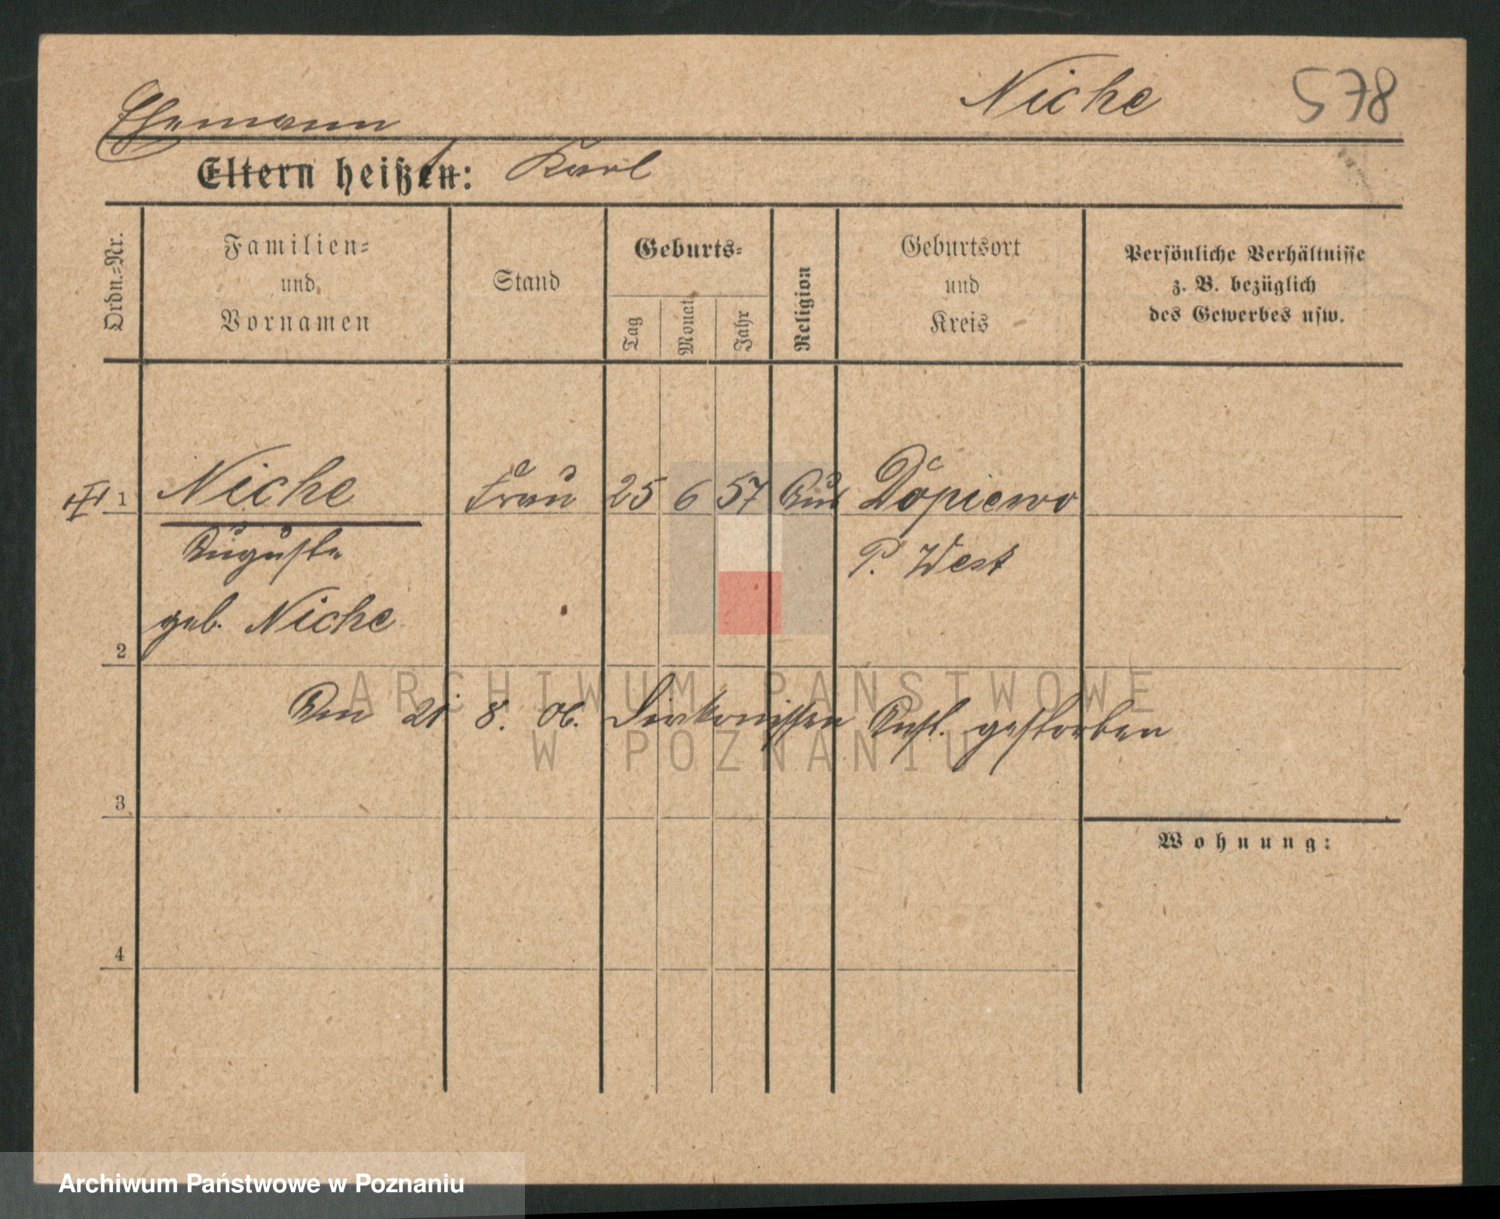 Niche 578
Ehemann
Eltern heißt: Karl
Ordn.-Nr.
Familien-
und
Vornamen
Stand
Geburts-
Tag
Monat
Jahr
Religion
Geburtsort
und
Kreis
Persönliche Verhältnisse
z. B. bezüglich
des Gewerbes usw.
1 Niche Frau 25 6 57 Dopiewo
Auguste P. West
geb. Niche
2
Den 21 8. 06. Diakonissen Anst. gestorben
3
Wohnung:
4
ARCHIWUM PAŃSTWOWE
W POZNANIU
Archiwum Państwowe w Poznaniu